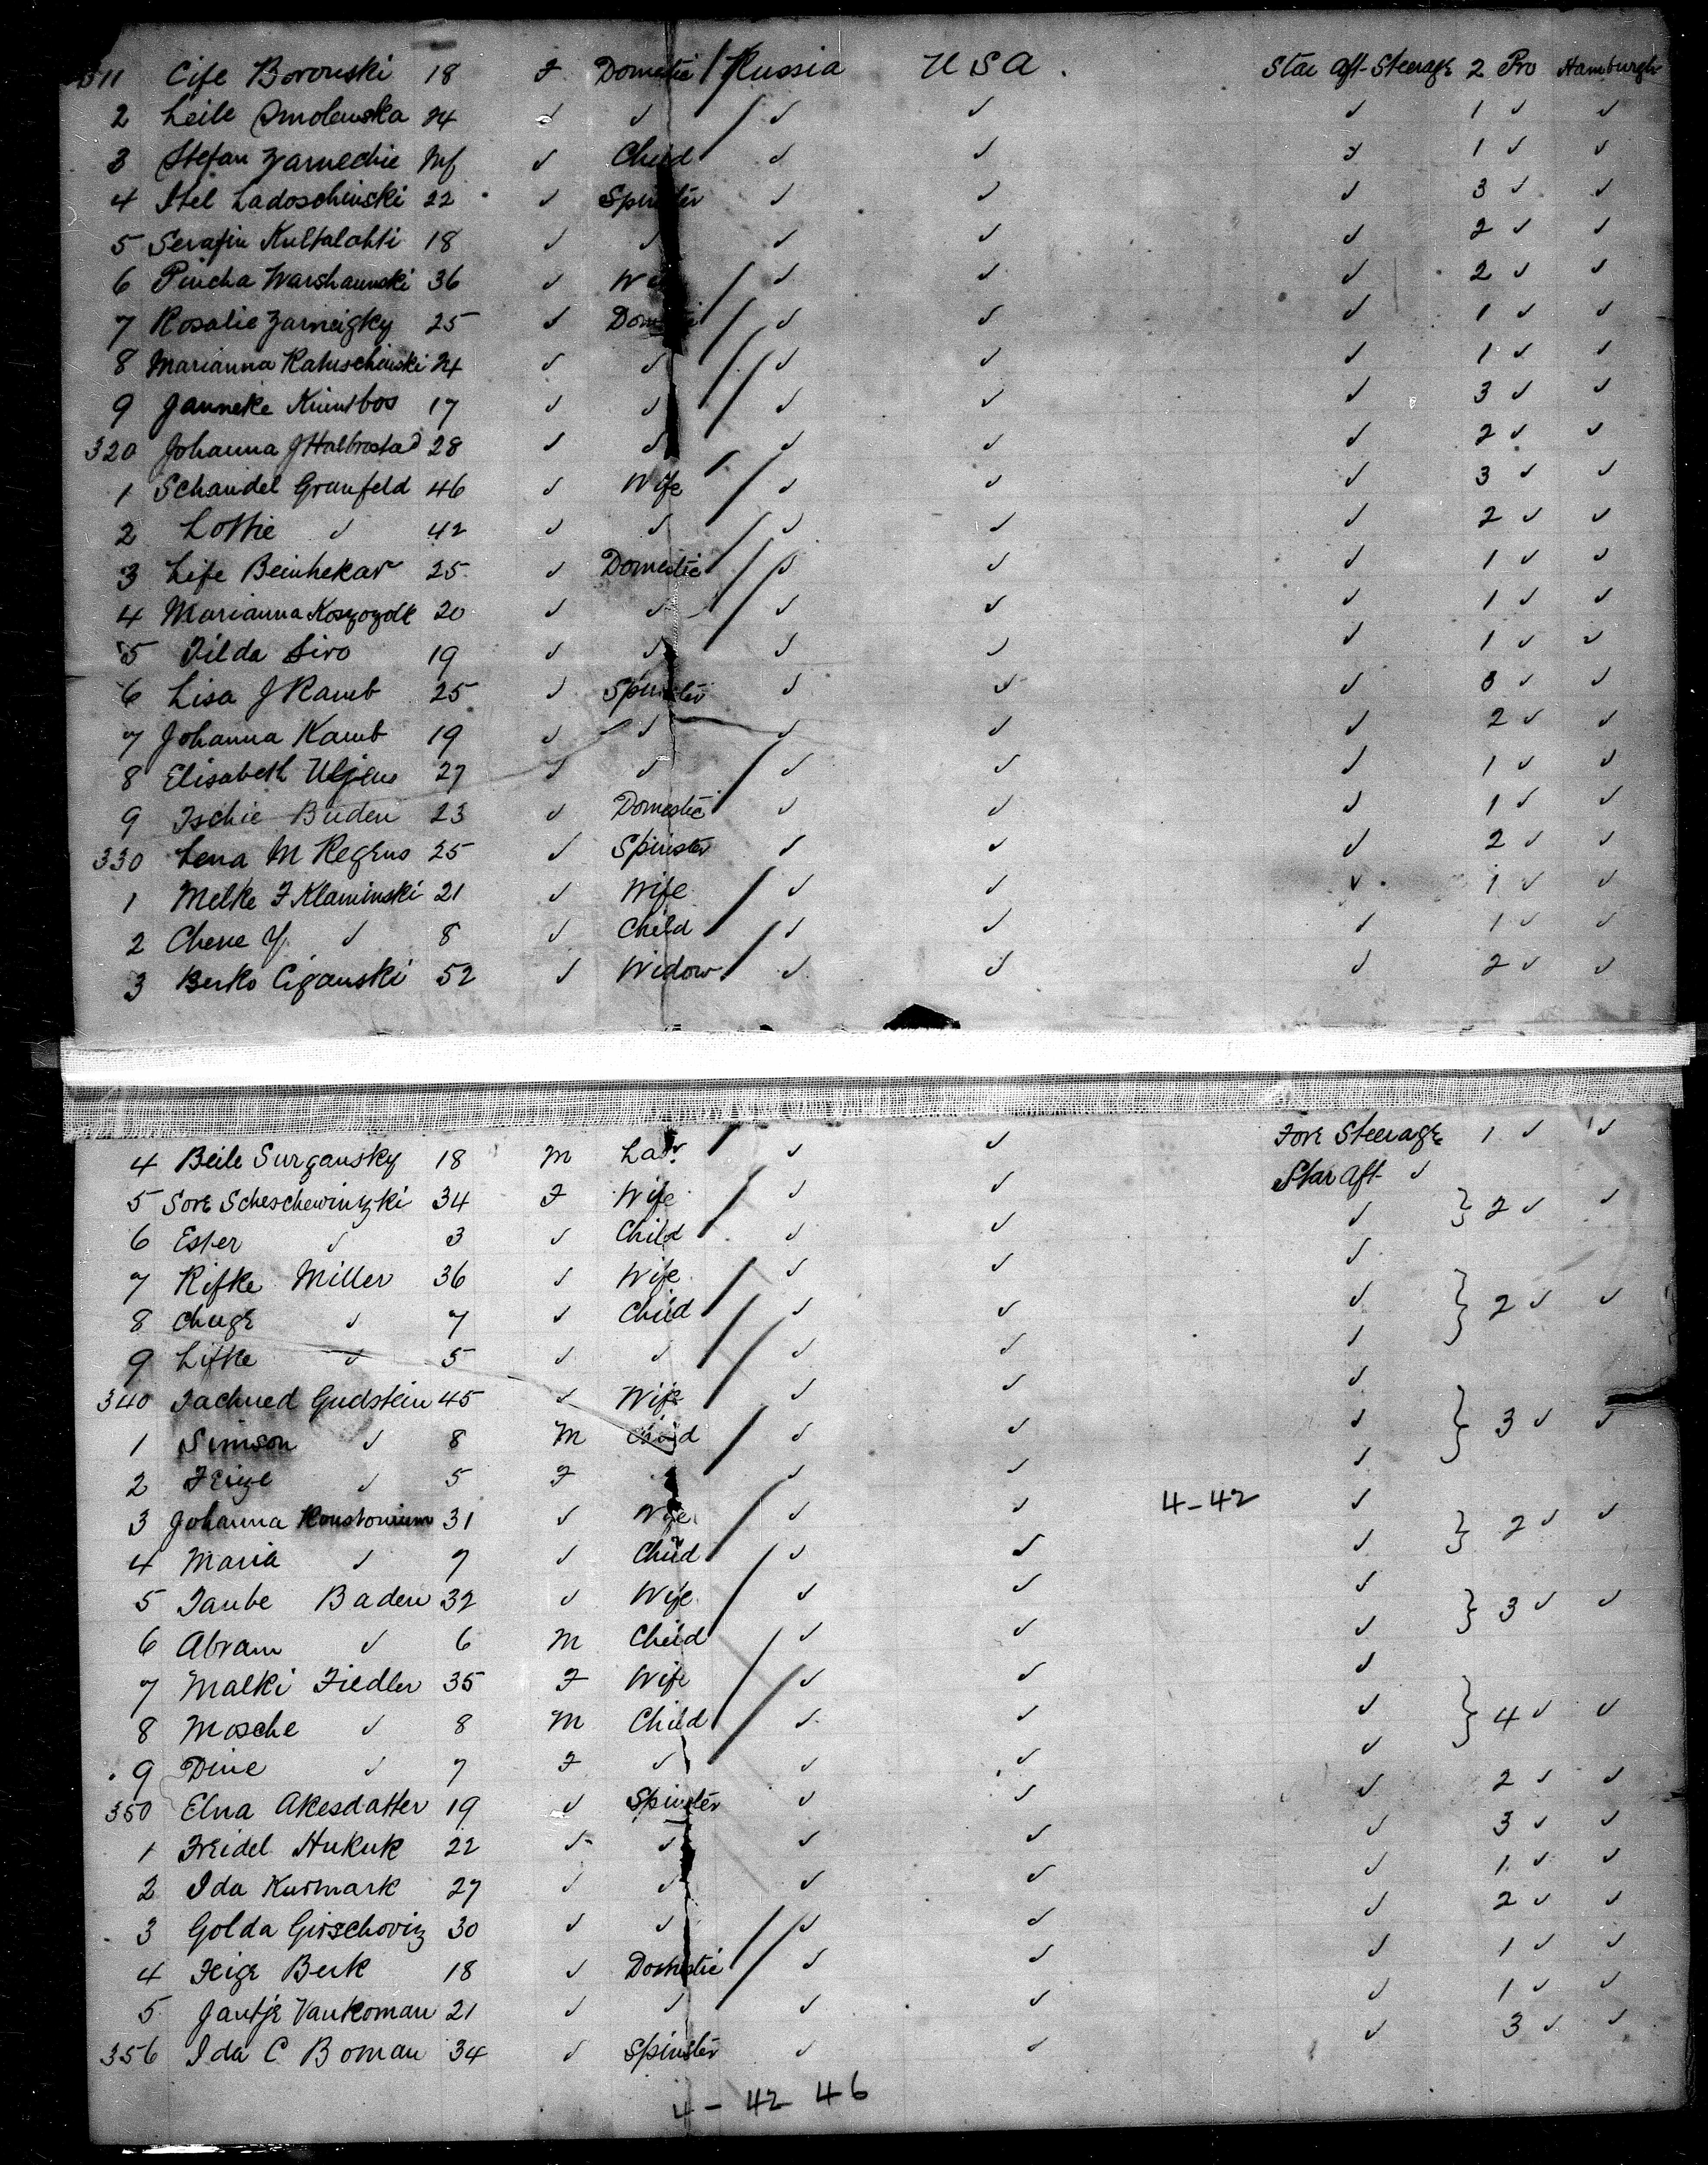 311 Cife Borouski 18 F Domestic / Russia U S A. Star Aft Steerage 2 Pro Hamburgh
2 Leile Smolenska 24 ✓ ✓ / ✓ ✓ ✓ 1 ✓ ✓
3 Stefan Zarnechie Inf ✓ Child ✓ ✓ ✓ 1 ✓ ✓
4 Itel Ladoschinski 22 ✓ Spinster ✓ ✓ ✓ 3 ✓ ✓
5 Serafin Kultalahti 18 ✓ ✓ ✓ ✓ ✓ 2 ✓ ✓
6 Pincha Warshaunski 36 ✓ Wife / ✓ ✓ ✓ 2 ✓ ✓
7 Rosalie Zarneigky 25 ✓ Domestic / ✓ ✓ ✓ 1 ✓ ✓
8 Marianna Ratuschinski 24 ✓ ✓ / ✓ ✓ ✓ 1 ✓ ✓
9 Janneke 17 ✓ ✓ / ✓ ✓ ✓ 3 ✓ ✓
320 Johanna J Halbrostad 28 ✓ ✓ ✓ ✓ ✓ 2 ✓ ✓
1 Schaudel Grunfeld 46 ✓ Wife / ✓ ✓ ✓ 3 ✓ ✓
2 Lottie ✓ 42 ✓ ✓ / ✓ ✓ ✓ 2 ✓ ✓
3 Life Beinhekar 25 ✓ Domestic / ✓ ✓ ✓ 1 ✓ ✓
4 Marianna 20 ✓ ✓ / ✓ ✓ ✓ 1 ✓ ✓
5 Tilda Siro 19 ✓ ✓ ✓ ✓ ✓ 1 ✓ ✓
6 Lisa J Kamb 25 ✓ Spinster ✓ ✓ ✓ ✓ ✓
7 Johanna Kamb 19 ✓ ✓ ✓ ✓ ✓ 2 ✓ ✓
8 Elisabeth Uljens 27 ✓ ✓ / ✓ ✓ ✓ 1 ✓ ✓
9 Ischie Buden 23 ✓ Domestic ✓ ✓ ✓ 1 ✓ ✓
330 Lena M Regens 25 ✓ Spinster ✓ ✓ ✓ 2 ✓ ✓
1 Melke F Klaminski 21 ✓ Wife / ✓ ✓ ✓ 1 ✓ ✓
2 Chene Y ✓ 8 ✓ Child / ✓ ✓ ✓ 1 ✓ ✓
3 Berko Ciganski 52 ✓ Widow / ✓ ✓ ✓ 2 ✓ ✓
4 Beile Surgansky 18 M Labr / ✓ ✓ Fore Steerage 1 ✓ ✓
5 Sore Scheschewintzki 34 F Wife / ✓ ✓ Star Aft ✓
6 Ester ✓ 3 ✓ Child ✓ ✓ ✓ } 2 ✓ ✓
7 Rifke Miller 36 ✓ Wife / ✓ ✓ ✓
8 Chuge ✓ 7 ✓ Child / ✓ ✓ ✓ } 2 ✓ ✓
9 Lifke ✓ 5 ✓ ✓ / ✓ ✓ ✓
340 Jachned Gudstein 45 ✓ Wife ✓ ✓ ✓
1 Simson ✓ 8 M Child / ✓ ✓ ✓ } 3 ✓ ✓
2 Feige ✓ 5 F ✓ ✓ ✓
3 Johanna 31 ✓ Wife / ✓ ✓ 4-42 ✓
4 Maria ✓ 7 ✓ Child / ✓ ✓ ✓ } 2 ✓ ✓
5 Taube Baden 32 ✓ Wife / ✓ ✓ ✓
6 Abram ✓ 6 M Child ✓ ✓ ✓ } 3 ✓ ✓
7 Malki Fiedler 35 F Wife / ✓ ✓ ✓
8 Mosche ✓ 8 M Child / ✓ ✓ ✓ } 4 ✓ ✓
9 Dine ✓ 7 F ✓ ✓ ✓ ✓
350 Elna Akesdatter 19 ✓ Spinster ✓ ✓ ✓ 2 ✓ ✓
1 Freidel Hukuk 22 ✓ ✓ ✓ ✓ ✓ 3 ✓ ✓
2 Ida Kurmark 27 ✓ ✓ ✓ ✓ ✓ 1 ✓ ✓
3 Golda Girschoviz 30 ✓ ✓ / ✓ ✓ ✓ 2 ✓ ✓
4 Feige Berk 18 ✓ Domestic / ✓ ✓ ✓ 1 ✓ ✓
5 Jantje Vankoman 21 ✓ ✓ ✓ ✓ ✓ 1 ✓ ✓
356 Ida C Boman 34 ✓ Spinster ✓ ✓ ✓ 3 ✓ ✓
4 - 42 46